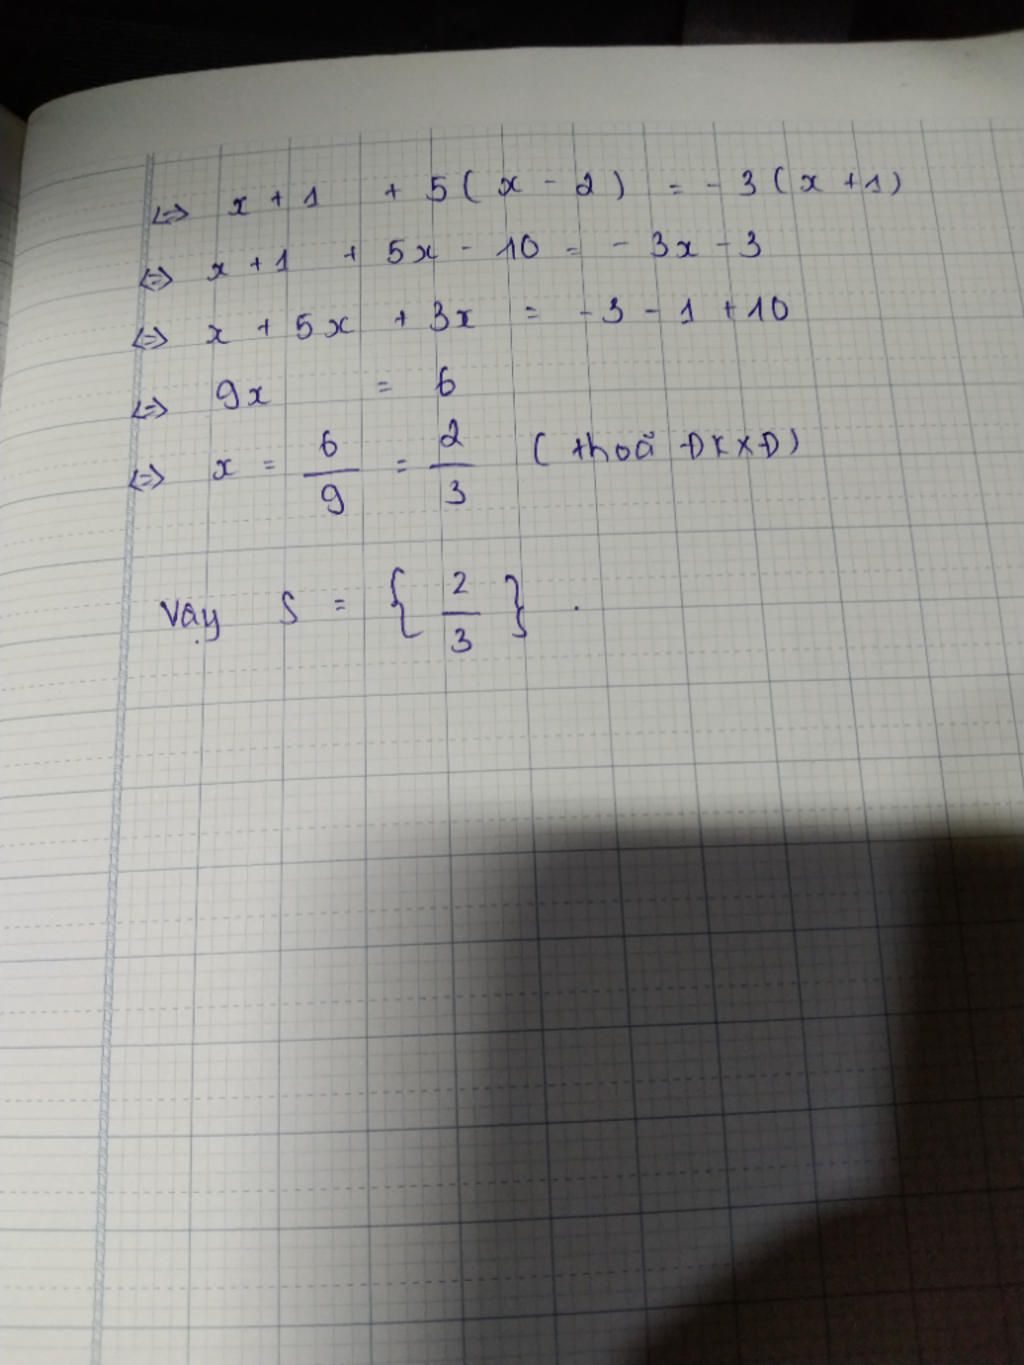 <=> x + 1 + 5(x - 2) = - 3(x + 1)
<=> x + 1 + 5x - 10 = - 3x - 3
<=> x + 5x + 3x = - 3 - 1 + 10
<=> 9x = 6
<=> x = 6/9 = 2/3 (thoã ĐKXĐ)
Vậy S = { 2/3 } .